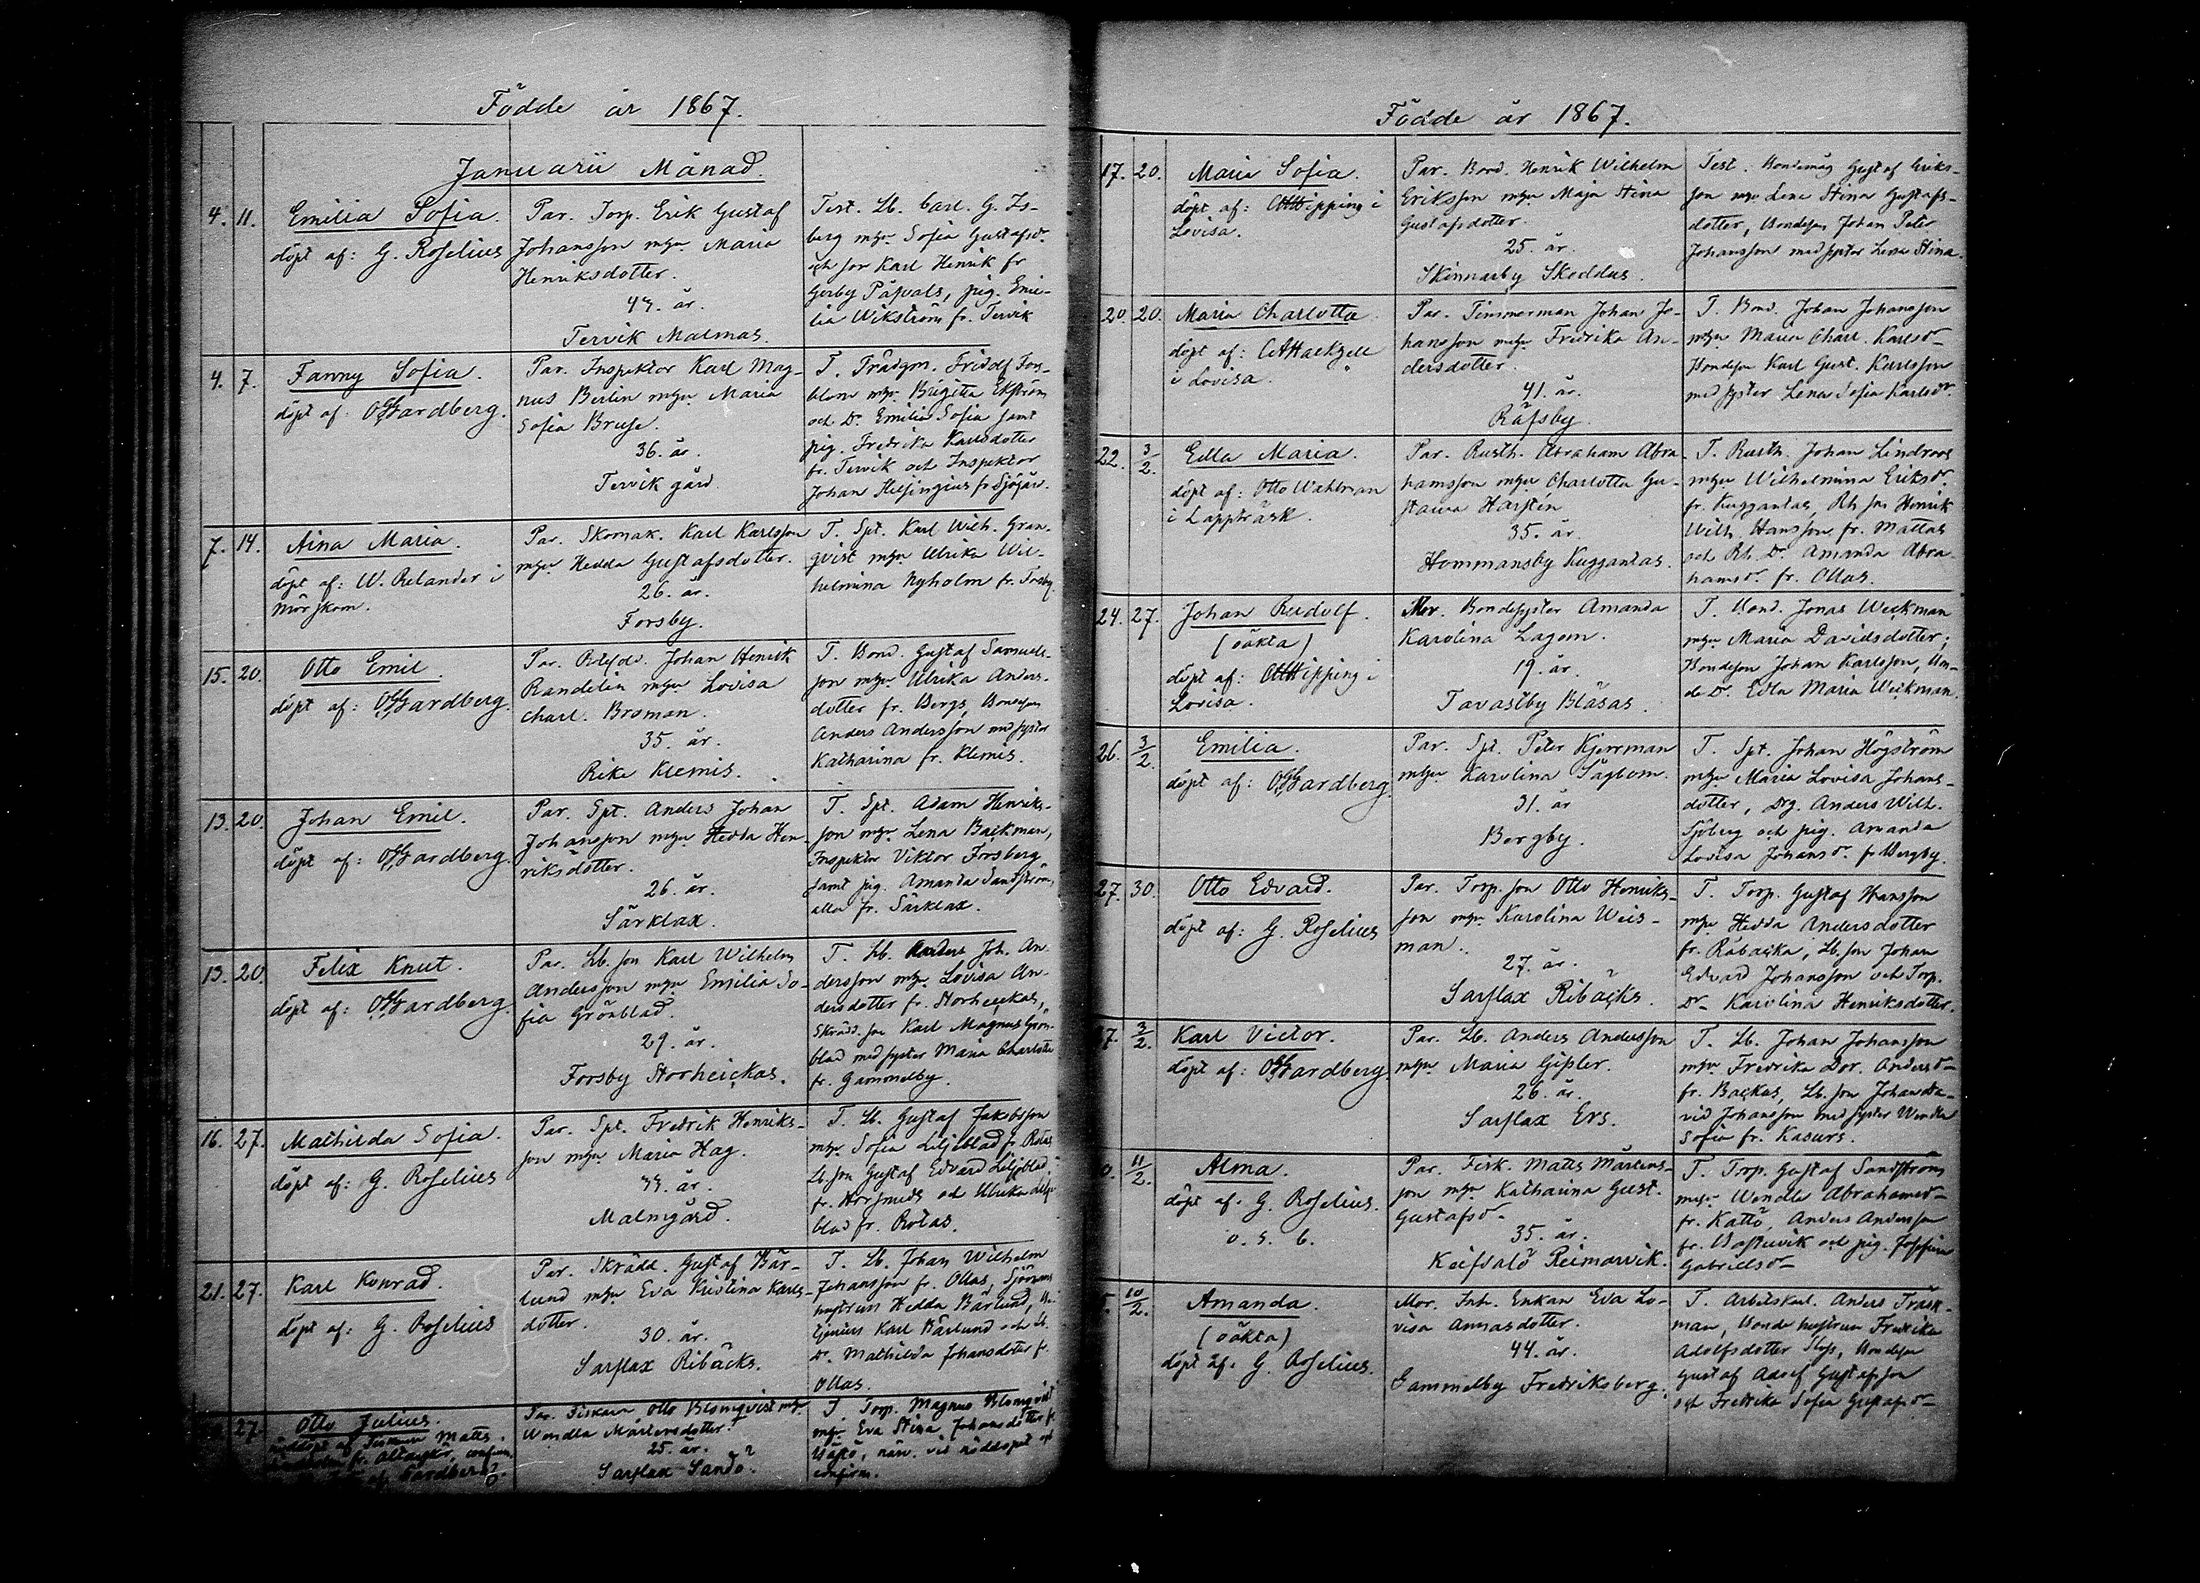 Födde år 1867.
Januarii Månad.
4. 11. Emilia Sofia.
döpt af: G. Roselius
Par. Torp. Erik Gustaf
Johansson m hu Maria
Henriksdotter.
43. år.
Tervik Malmas.
Test. Lb. Carl. G. Is-
berg m hu Sofia Gustafsdr
och son Karl Henrik fr
Gerby Påfvals, pig. Emi-
lia Wikström fr. Tervik
4. 7. Fanny Sofia.
döpt af: Gardberg.
Par. Inspektor Karl Mag-
nus Berlin m hu Maria
Sofia Bruse.
36. år.
Tervik gård
T. Trädgm. Fridolf Fors-
blom m hu Brigitta Ekström
och Dr. Emilia Sofia samt
pig. Fredrika Karlsdotter
fr. Tervik och Inspektor
Johan Helsingius fr Sjögår.
7. 14. Aina Maria.
döpt af: W. Relander i
Mörskom.
Par. Skomak. Karl Karlsson
m hu Hedda Gustafsdotter.
26. år.
Forsby.
T. Spt. Karl Wilh. Gran-
qvist m hu Ulrika Wil-
helmina Nyholm fr. Forsby.
15. 20. Otto Emil
döpt af: Gardberg.
Par. Johan Henrik
Randelin m hu Lovisa
Charl. Broman.
35. år.
Rike Klemis.
T. Bond. Gustaf Samuels-
son m hu Ulrika Anders-
dotter fr. Bergs, Bondeson
Anders Andersson med syster
Katharina fr. Klemis.
13. 20. Johan Emil.
döpt af: Gardberg.
Par. Spt. Anders Johan
Johansson m hu Hedda Hen-
riksdotter.
26. år.
Särklax.
T. Spt. Adam Henriks-
son m hu Lena Backman,
Inspektor Viktor Forsberg
samt pig. Amanda Sandström,
alla fr. Särklax.
13. 20. Felix Knut.
döpt af: Gardberg.
Par. Lb. son Karl Wilhelm
Andersson m hu Emilia So-
fia Grönblad.
29. år.
Forsby Storheickas.
T. Lb. Anders Joh. An-
dersson m hu Lovisa An-
dersdotter fr. Storheickas,
Skrädd. son Karl Magnus Grön-
blad med syster Maria Charlotta
fr. Gammelby.
16. 27. Mathilda Sofia.
döpt af: G. Roselius
Par. Spt. Fredrik Henriks-
son m hu Maria Hag.
år.
Malmgård.
T. Lb. Gustaf Jakobsson
m hu Sofia Liljeblad fr. Rotas
Lb. son Gustaf Edvard Liljeblad,
fr. och Ulrika Lilje-
blad fr. Rotas.
21. 27. Karl Konrad.
döpt af: G. Roselius
Par. Skrädd. Gustaf Bär-
lund m hu Eva Kristina Karls-
dotter.
30. år.
Sarflax Ribacks.
T. Lb. Johan Wilhelm
Johansson fr. Ollas, Sjöman
hustrun Hedda Bärlund,
Karl Bärlund och Lb.
Dr. Mathilda Johansdotter fr.
Ollas.
27. Otto Julius.
nöddöpt af Fiskaren Matts
Gardberg.
Par. Fiskare Otto Blomqvist m hu
Wendla Mårtensdotter.
25. år.
Sarflax Sandö.
T. Torp. Magnus Blomqvist
m hu Eva Stina Johansdotter fr
närv. vid nöddopet och
confirm.
Födde år 1867.
17. 20. Maria Sofia.
döpt af: Hipping i
Lovisa.
Par. Bond. Henrik Wilhelm
Eriksson m hu Maja Stina
Gustafsdotter.
25. år.
Skinnarby Skoddus.
Test. Bondemåg Gustaf Eriks-
son m hu Lena Stina Gustafs-
dotter, Bondeson Johan Peter
Johansson med syster Lena Stina.
20. 20. Maria Charlotta.
döpt af:
i Lovisa.
Par. Timmerman Johan Jo-
hansson m hu Fredrika An-
dersdotter.
41. år.
Räfsby.
T. Bond. Johan Johansson
m hu Maria Charl. Karlsdr
Bondeson Karl Gust. Karlsson
med syster Lena Sofia Karlsdr.
22. 3/2. Edla Maria.
döpt af: Otto Wahlman
i Lappträsk.
Par. Rusth. Abraham Abra-
hamsson m hu Charlotta Gu-
stava Harstén
35. år
Hommansby Kuggantas.
T. Rusth. Johan Lindroos
m hu Wilhelmina Eriksdr.
fr. Kuggantas, Rh son Henrik
Wilh. Hansson fr. Mattas
och Rh. Dr. Amanda Abra-
hamsdr. fr. Ollas.
24. 27. Johan Rudolf.
(oäkta)
döpt af: Hipping i
Lovisa.
Mor. Bondesyster Amanda
Karolina Lagom.
19. år.
Tavastby Bläsas.
T. Bond. Jonas Weckman
m hu Maria Davidsdotter;
Bondeson Johan Karlsson, Bon-
de Dr. Edla Maria Weckman.
26. 3/2. Emilia.
döpt af: Gardberg.
Par. Spt. Peter Kjerrman
m hu Karolina Sågbom.
31. år
Borgby.
T. Spt. Johan Högström
m hu Maria Lovisa Johans-
dotter, Drg. Anders Wilh.
Sjöberg och pig. Amanda
Lovisa Johansdr. fr Borgby.
27. 30. Otto Edvard.
döpt af: G. Roselius
Par. Torp. son Otto Henriks-
son m hu Karolina Weis-
man.
27. år.
Sarflax Ribacks.
T. Torp. Gustaf Hansson
m hu Hedda Andersdotter
fr. Råbacka, Lb. son Johan
Edvard Johansson och Torp.
Dr Karolina Henriksdotter.
27. 3/2. Karl Victor.
döpt af: Gardberg.
Par. Lb. Anders Andersson
m hu Maria Gisler.
26. år.
Sarflax Ers.
T. Lb. Johan Johansson
m hu Fredrika Dor. Andersdr
fr. Backas, Lb. son Johan Da-
vid Johansson med syster Wendla
Sofia fr. Kasurs.
11/2. Alma.
döpt af. G. Roselius.
Par. Fisk. Matts Mårtens-
son m hu Katharina Gust.
Gustafsdr.
35. år.
Keifsalö Reimarvik.
T. Torp. Gustaf Sandström
m hu Wendla Abrahamsdr
fr. Kattö, Anders Andersson
fr. och pig. Josefina
Gabrielsdr
10/2. Amanda.
(oäkta)
döpt af. G. Roselius.
Mor. Inh. Enkan Eva Lo-
visa Annasdotter.
44. år.
Gammelby Fredriksberg.
T. Arbetskarl. Anders Träsk-
man, Bonde hustrun Fredrika
Adolfsdotter Bondeson
Gustaf Adolf Gustafsson
och Fredrika Sofia Gustafsdr